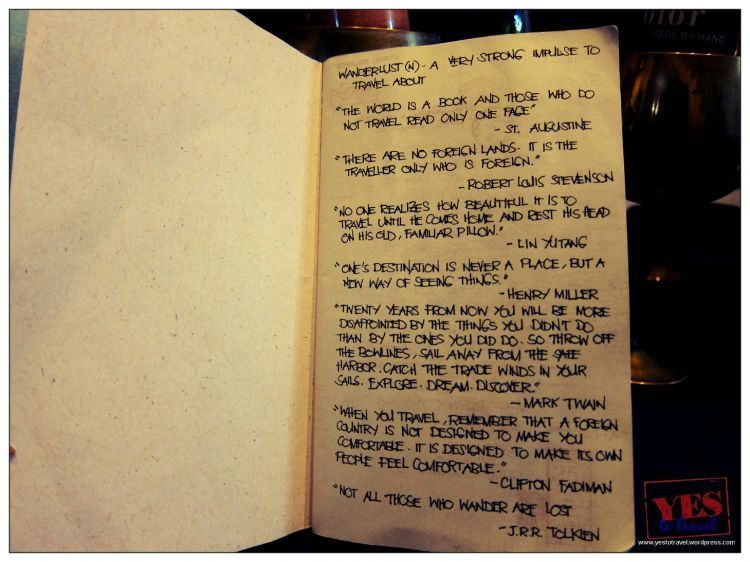 WANDERLUST (N) - A VERY STRONG IMPULSE TO
TRAVEL ABOUT
"THE WORLD IS A BOOK AND THOSE WHO DO
NOT TRAVEL READ ONLY ONE PAGE"
- ST. AUGUSTINE
"THERE ARE NO FOREIGN LANDS. IT IS THE
TRAVELLER ONLY WHO IS FOREIGN."
- ROBERT LOUIS STEVENSON
"NO ONE REALIZES HOW BEAUTIFUL IT IS TO
TRAVEL UNTIL HE COMES HOME AND REST HIS HEAD
ON HIS OLD, FAMILIAR PILLOW."
- LIN YUTANG
"ONE'S DESTINATION IS NEVER A PLACE, BUT A
NEW WAY OF SEEING THINGS."
- HENRY MILLER
"TWENTY YEARS FROM NOW YOU WILL BE MORE
DISAPPOINTED BY THE THINGS YOU DIDN'T DO
THAN BY THE ONES YOU DID DO. SO THROW OFF
THE BOWLINES, SAIL AWAY FROM THE SAFE
HARBOR. CATCH THE TRADE WINDS IN YOUR
SAILS. EXPLORE. DREAM. DISCOVER."
- MARK TWAIN
"WHEN YOU TRAVEL, REMEMBER THAT A FOREIGN
COUNTRY IS NOT DESIGNED TO MAKE YOU
COMFORTABLE. IT IS DESIGNED TO MAKE ITS OWN
PEOPLE FEEL COMFORTABLE."
- CLIFTON FADIMAN
"NOT ALL THOSE WHO WANDER ARE LOST
- J.R.R. TOLKIEN
YES
to travel
www.yestotravel.wordpress.com